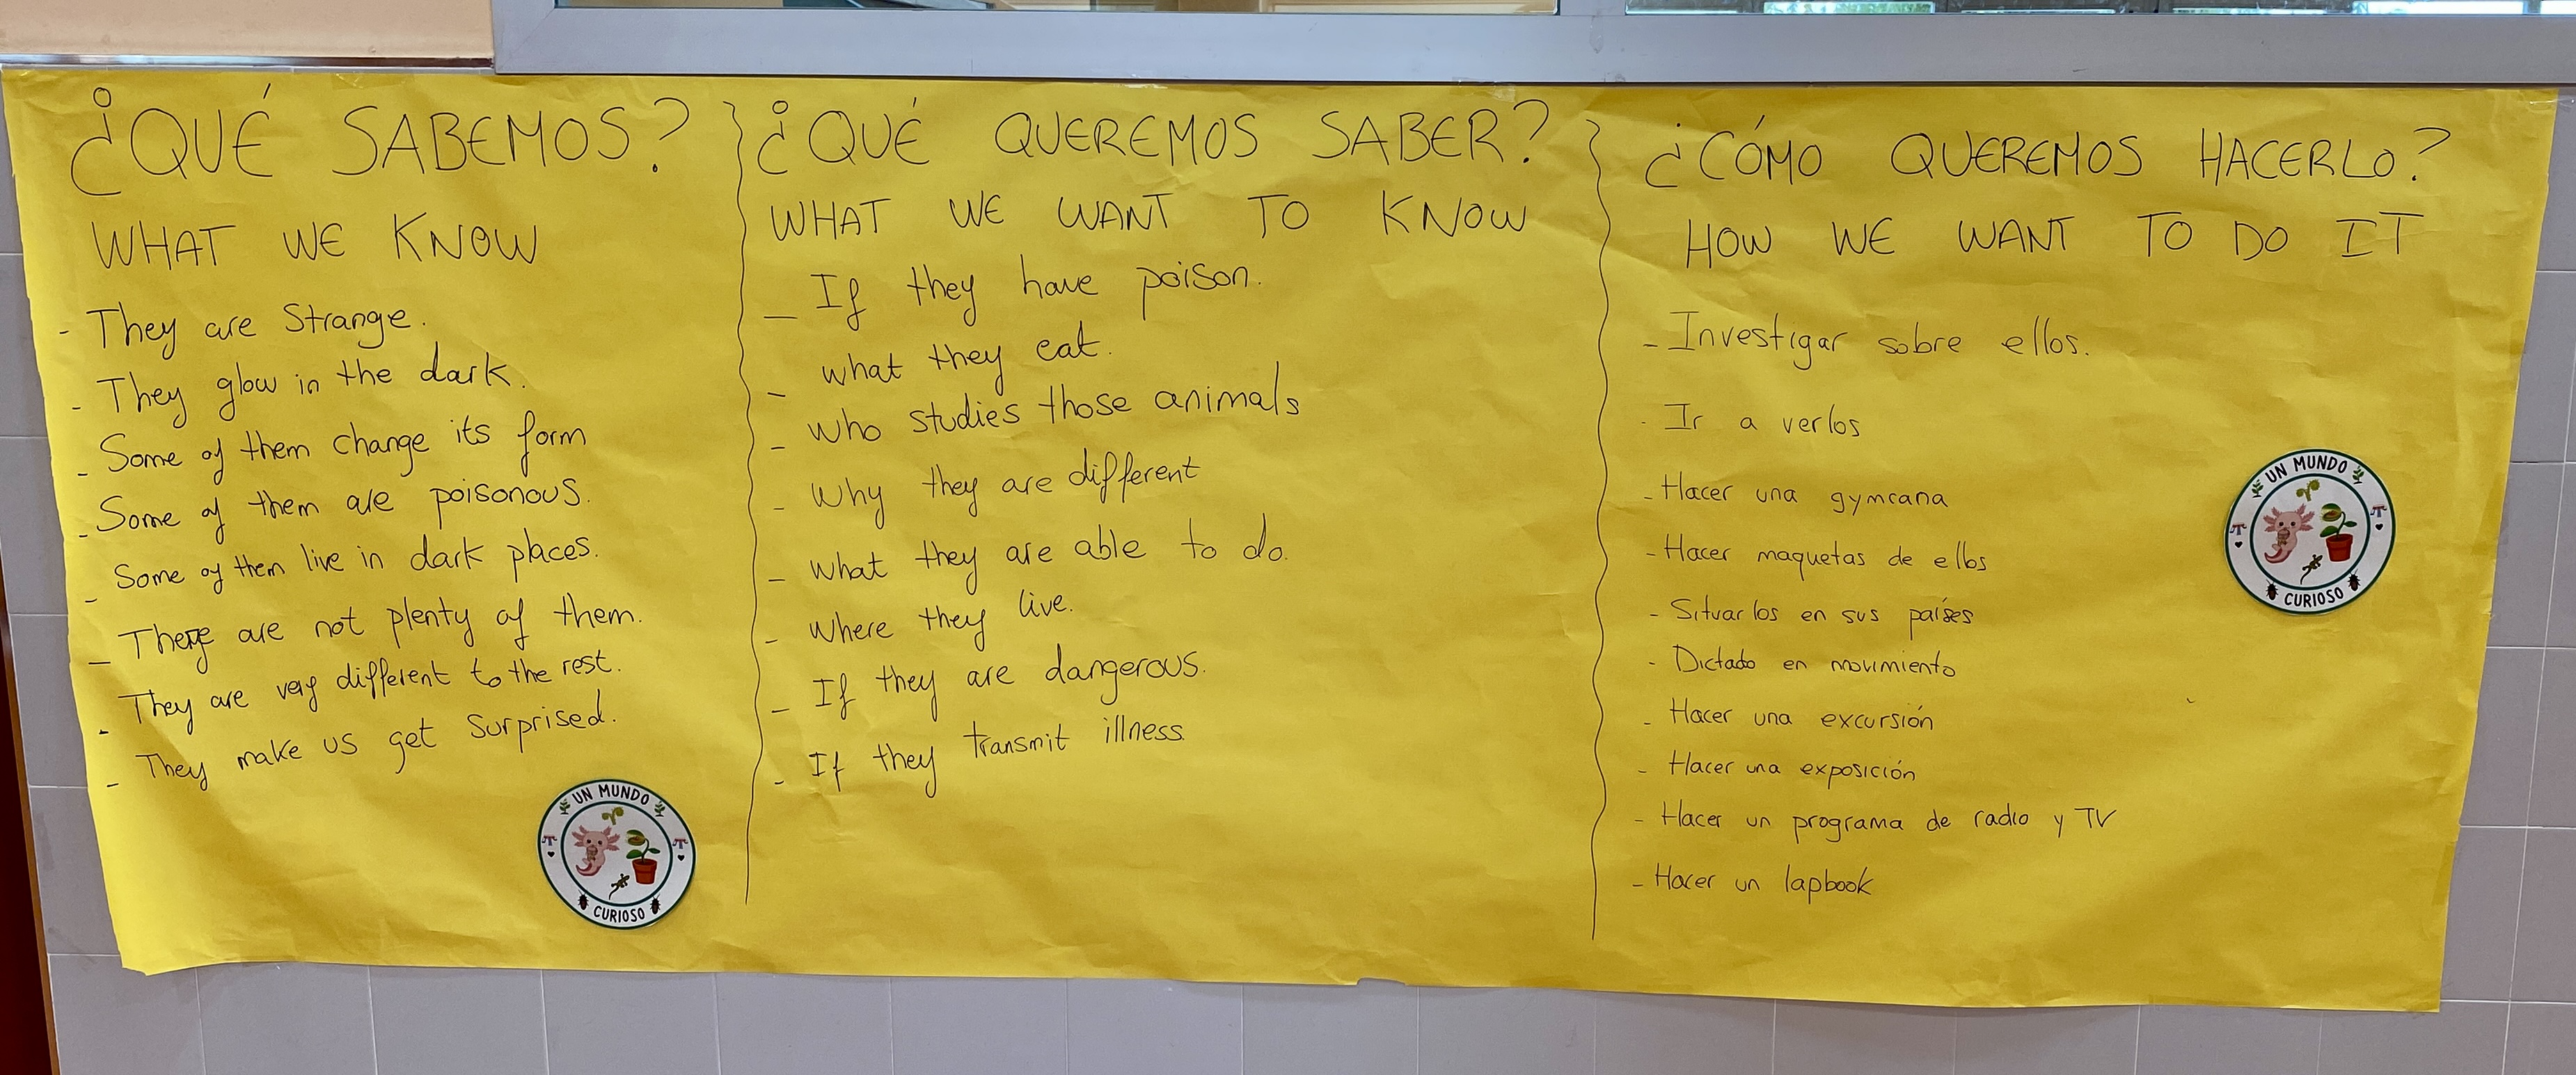 ¿QUÉ SABEMOS?
WHAT WE KNOW
- They are Strange.
- They glow in the dark.
- Some of them change its form
- Some of them are poisonous.
- Some of them live in dark places.
- There are not plenty of them.
- They are very different to the rest.
- They make us get surprised.
UN MUNDO
CURIOSO
¿QUÉ QUEREMOS SABER?
WHAT WE WANT TO KNOW
- If they have poison.
- what they eat.
- who studies those animals
- why they are different
- what they are able to do.
- where they live.
- If they are dangerous.
- If they transmit illness
¿CÓMO QUEREMOS HACERLO?
HOW WE WANT TO DO IT
- Investigar sobre ellos.
- Ir a verlos
- Hacer una gymcana
- Hacer maquetas de ellos
- Situarlos en sus países
- Dictado en movimiento
- Hacer una excursión
- Hacer una exposición
- Hacer un programa de radio y TV
- Hacer un lapbook
UN MUNDO
CURIOSO